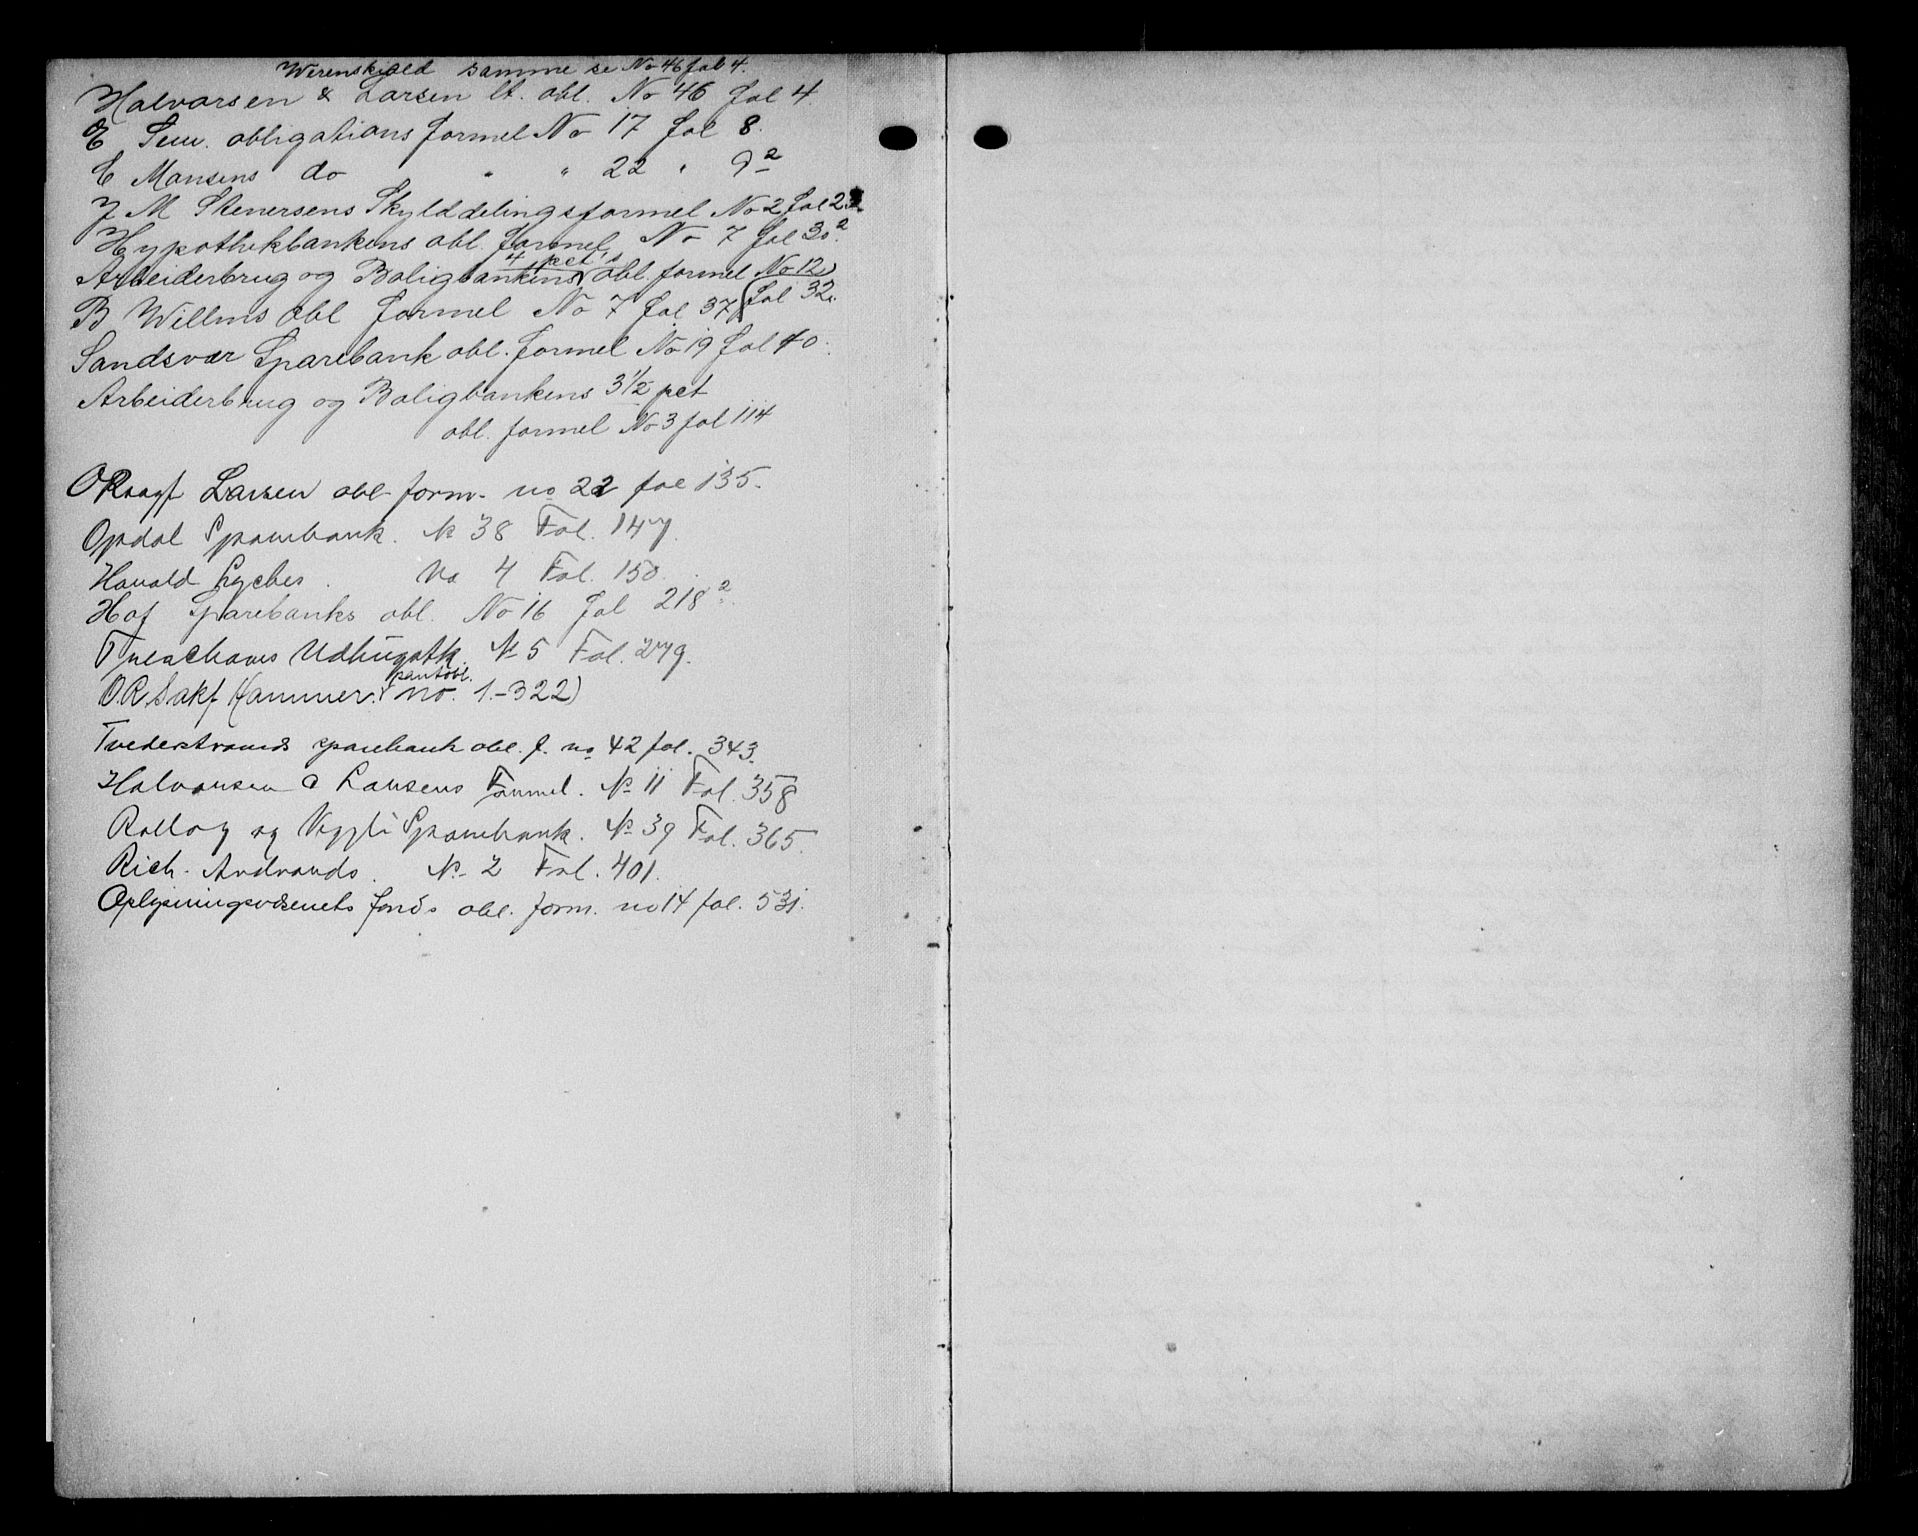 Werenskiold samme se No 46 fol 4.
Halvorsen & Larsen lt. obl. No 46 fol 4
E Sem. obligations formel No 17 fol 8.
E Monsens do " " 22 " 9 2
J M Stenersens Skylddelingsformel No 2 fol
Hypothekbankens obl. formel No 7 fol 30 2.
4 pct's
Arbeiderbrug og Boligbankens obl. formel No 12
B Willms obl formel No 7 fol 37 { fol 32.
Sandsvær Sparebank obl. formel No 19 fol 40.
Arbeiderbrug og Boligbankens 3 1/2 pct
obl. formel No 3 fol 114
O Rsagf Larsen obl form. no 22 fol 135.
Opdal Sparebank. No 38 Fol. 147.
Harald Lyches. No 4 Fol. 150.
Hof Sparebanks obl. No 16 fol 218 2.
No 5 Fol. 279.
pantobl.
O.R.Sakf Hammer. no. 1.-322)
Tvedestrands sparebank obl. f. no 42 fol. 343.
Halvorsen & Larsens Formel. No 11 Fol. 358
Rollag og Veggli Sparebank. No 39 Fol. 365.
Rich. Andvords. No 2 Fol. 401.
Oplysningsvæsenets fonds obl. form. no 14 fol. 531.